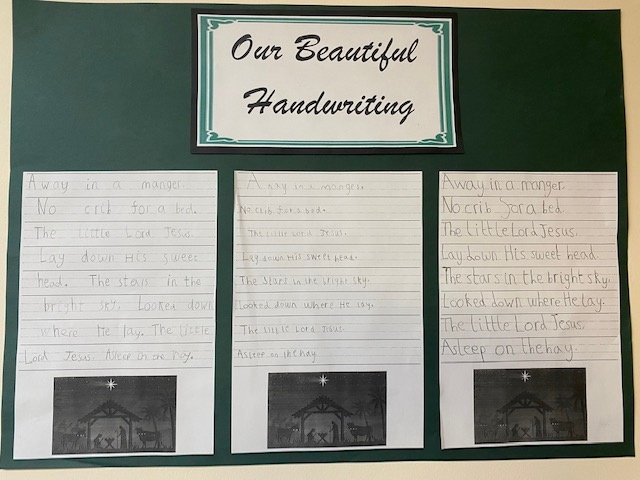 Our Beautiful
Handwriting
Away in a manger.
No crib for a bed.
The little Lord Jesus.
Lay down His sweet
head. The stars in the
bright sky. Looked down
where He lay. The little
Lord Jesus. Asleep on the hay.
Away in a manger.
No crib for a bed.
The little Lord Jesus.
Lay down His sweet head.
The stars in the bright sky.
Looked down where He lay.
The little Lord Jesus.
Asleep on the hay
Away in a manger.
No crib for a bed.
The little Lord Jesus.
Lay down His sweet head.
The stars in the bright sky.
Looked down where He lay.
The little Lord Jesus.
Asleep on the hay.